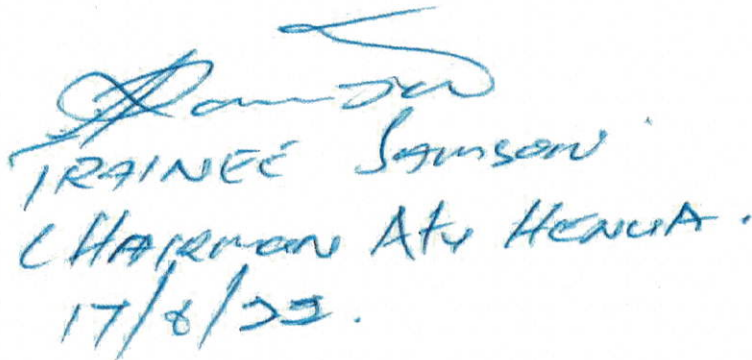 TRAINEE SAMSON.
CHAIRMAN Atu HENUA.
17/8/22.